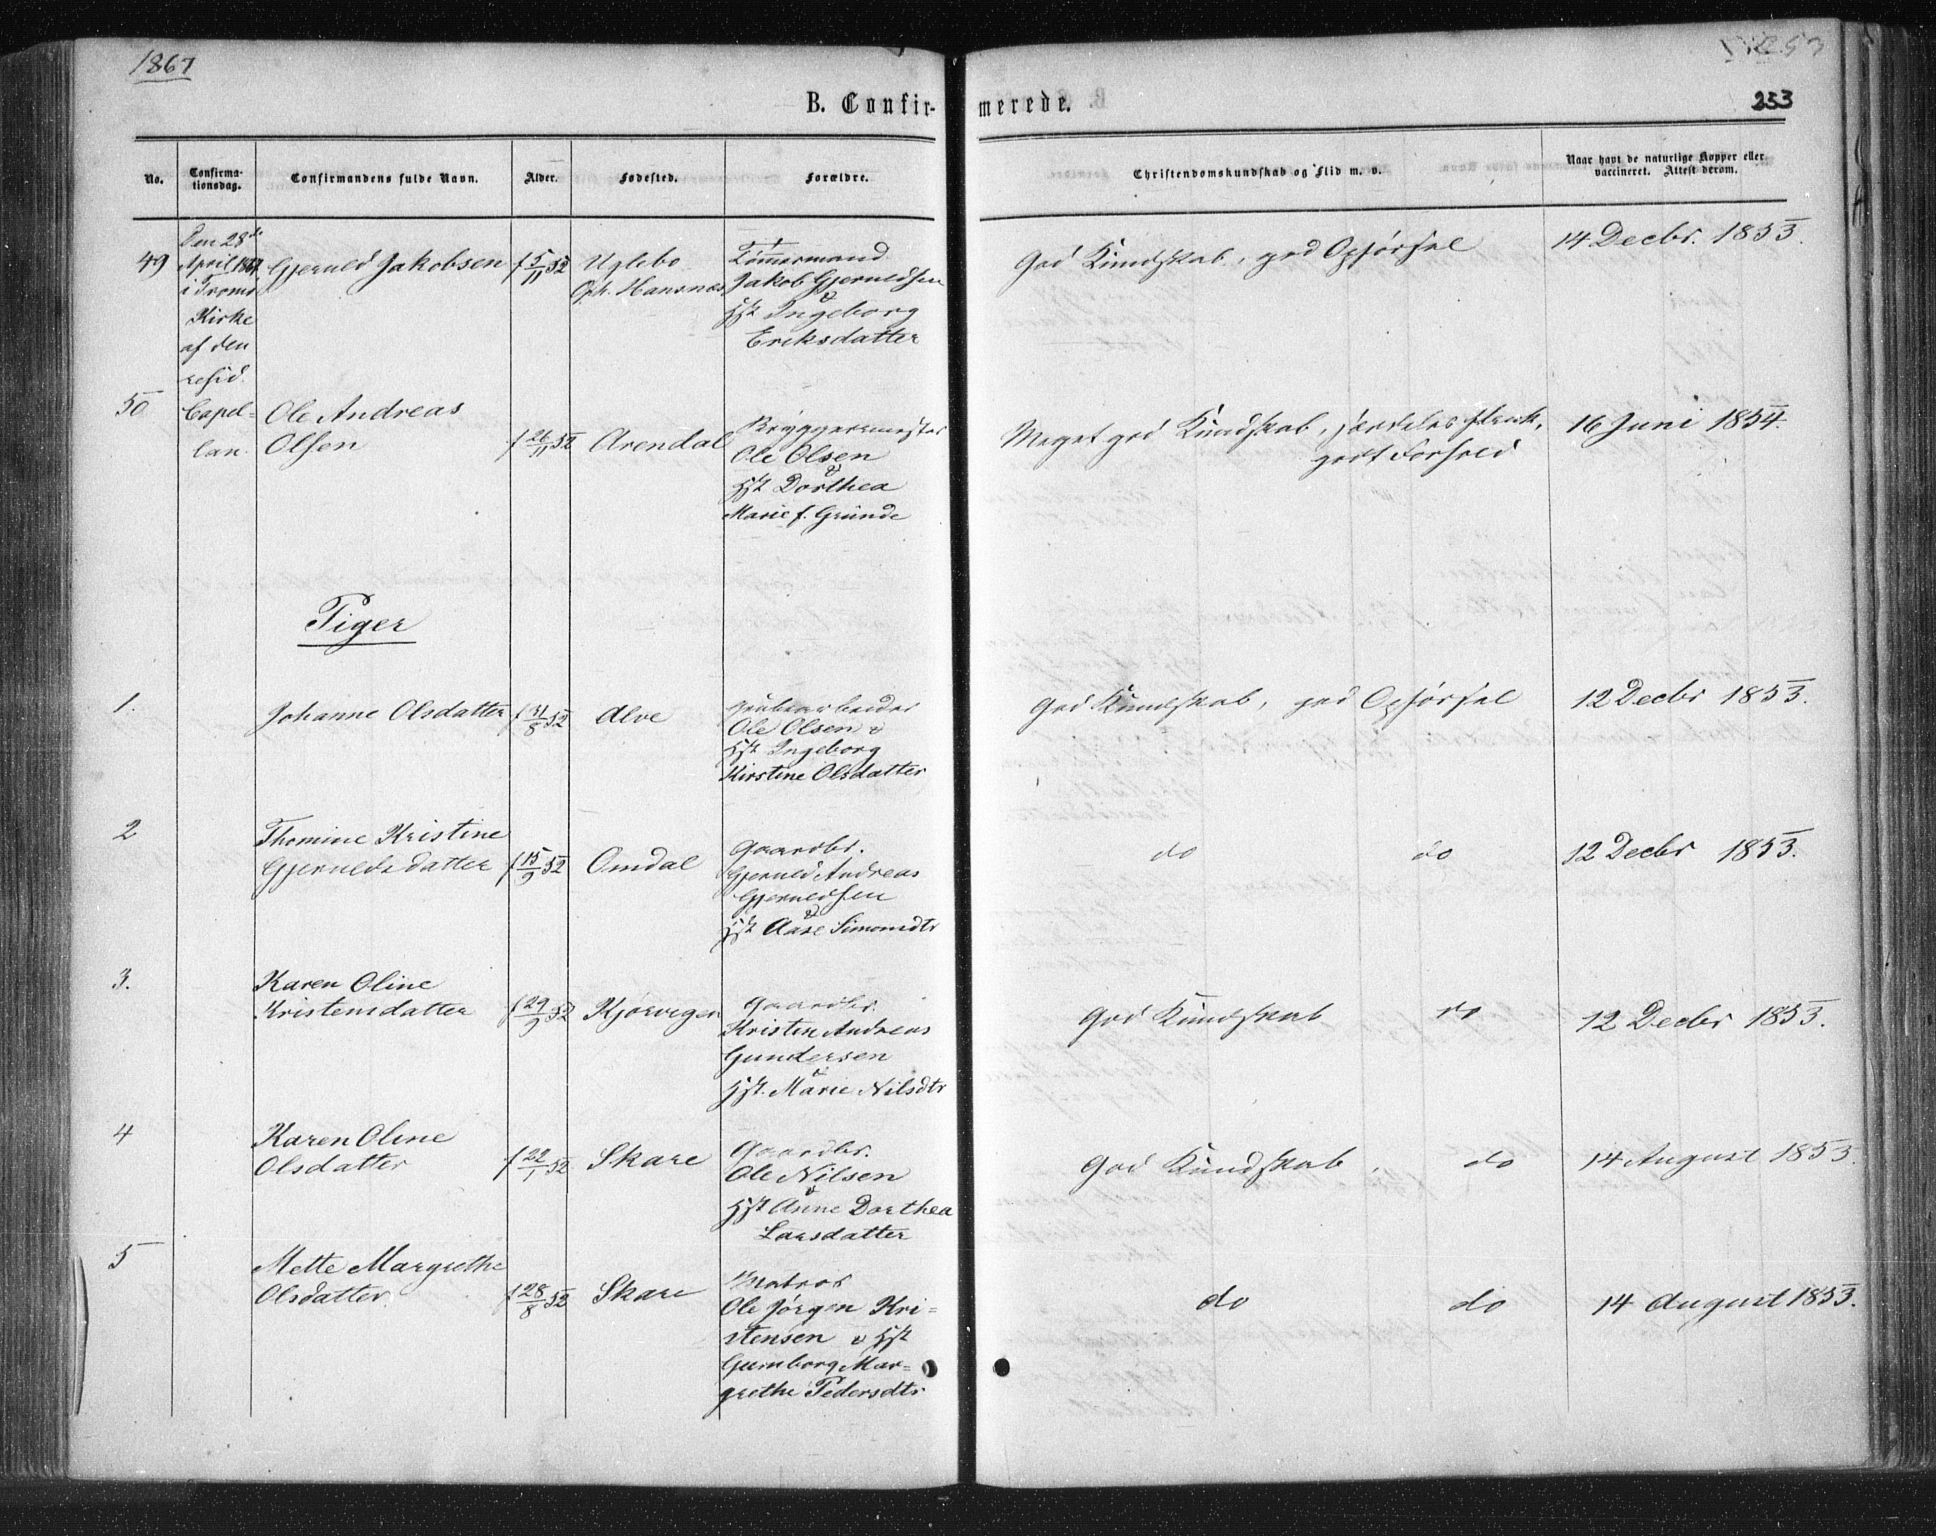 1867
B. Confir-
merede.
253
No.
Confirma-
tionsdag.
Confirmandens fulde Navn.
Alder.
Fødested.
Forældre.
Christendomskundskab og Flid m. v.
Naar havt de naturlige Kopper eller
vaccineret. Attest derom.
49
Den 28de
April 1867
i Tromø
Kirke
af den
resid.
Capel-
lan.
Gjeruld Jakobsen
f 5/11 52
Uglebo
Oph. Hansnæs
Tømmermand
Jakob Gjeruldsen
&
Hst Ingeborg
Eriksdatter
God Kundskab, god Opførsel
14 Decbr. 1853.
50
Ole Andreas
Olsen
f 26/11 52
Arendal
Bryggermester
Ole Olsen
&
Hst Dorthea
Marie f. Gründe
Meget god Kundskab, særdeles flink,
godt Forhold
16 Juni 1854.
Piger
1.
Johanne Olsdatter
f 31/8 52
Alve
Grubearbeider
Ole Olsen &
Hst Ingeborg
Kirstine Olsdatter
God Kundskab, god Opførsel
12 Decbr 1853.
2
Thomine Kristine
Gjerulds datter
f 15/9 52
Omdal
Gaardbr.
Gjeruld Andreas
Gjeruldsen
&
Hst Aase Simonsdtr
do do
12 Decbr 1853.
3.
Karen Oline
Kristensdatter
f 29/9 52
Kjørvegen
Gaardbr.
Kristen Andreas
Gundersen
&
Hst. Marie Nilsdtr
God Kundskab do
12 Decbr 1853.
4
Karen Oline
Olsdatter
f 22/1 52
Skare
Gaardbr.
Ole Nilsen
&
Hst Anne Dorthea
Larsdatter
God Kundskab, do
14 August 1853.
5
Mette Margrethe
Olsdatter.
f 28/8 52
Skare
Matros
Ole Jørgen Kri-
stensen & Hst
Gumborg Mar-
grethe Pedersdtr
do do
14 August 1853.